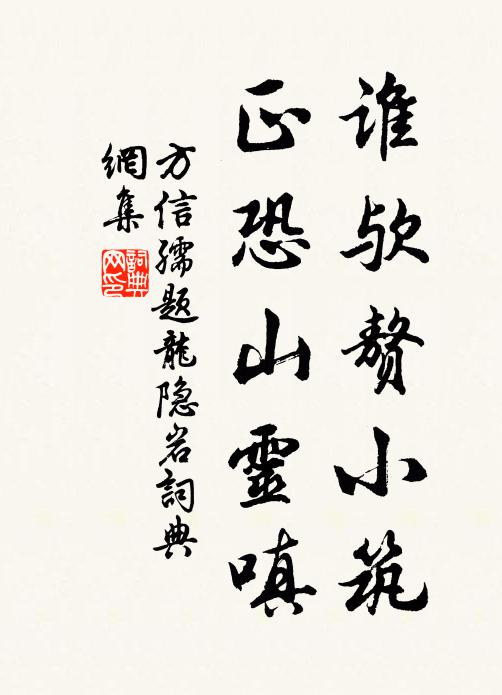 谁欤赘小筑
正恐山靈嗔
方信孺题龍隐岩詞典
網集
詞典网印